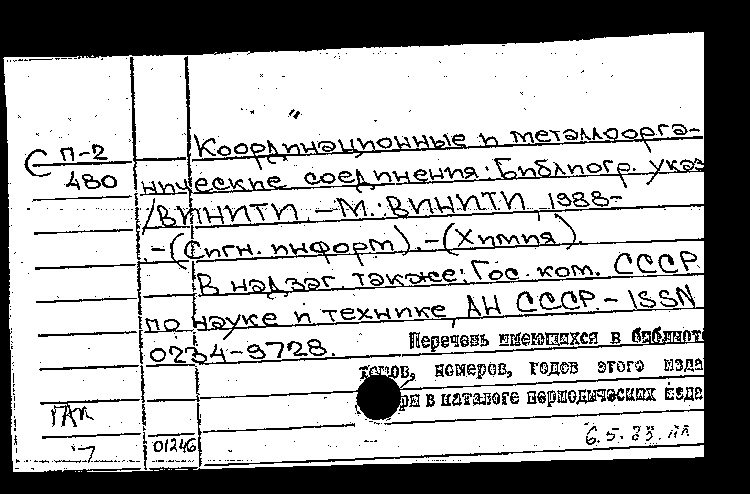 С П-2
480
Координационные и металлоорга-
нические соединения: Библиогр. указ
/ВИНИТИ. – М.: ВИНИТИ, 1988-
.-(Сигн. информ). -(Химия).
В надзаг. также: Гос. ком. СССР
по науке и технике, АН СССР. - ISSN
0234-9728.
Перечень имеющихся в библиот
томов, номеров, годов этого изда
ри в каталоге периодических изда
7
01246